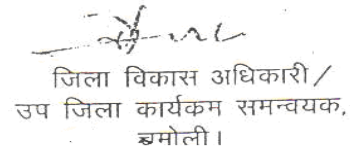 जिला विकास अधिकारी /
उप जिला कार्यकम समन्वयक,
चमोली।